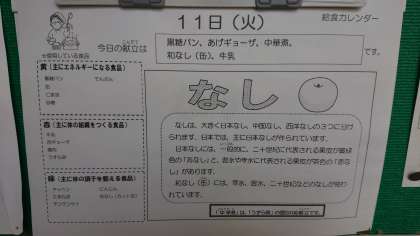 11日(火)
給食カレンダー
今日の献立は
黒糖パン、あげギョーザ、中華煮、
和なし(缶)、牛乳
です。
※使用している食品
黄(主にエネルギーになる食品)
黒糖パン
でんぷん
油
ごま油
砂糖
赤(主に体の組織をつくる食品)
牛乳
豚肉
うずら卵
緑(主に体の調子を整える食品)
にんじん
たまねぎ
なし
なしは、大きく日本なし、中国なし、西洋なしの3つに分け
られます。日本では、主に日本なしが作られています。
日本なしには、一般的に、二十世紀に代表される果皮が黄緑
色の「青なし」と、幸水や豊水に代表される果皮が茶色の「赤な
し」があります。
和なし(缶)には、幸水、豊水、二十世紀などのなしが使わ
れています。
「中華煮」は、「うずら卵」の個別対応献立です。